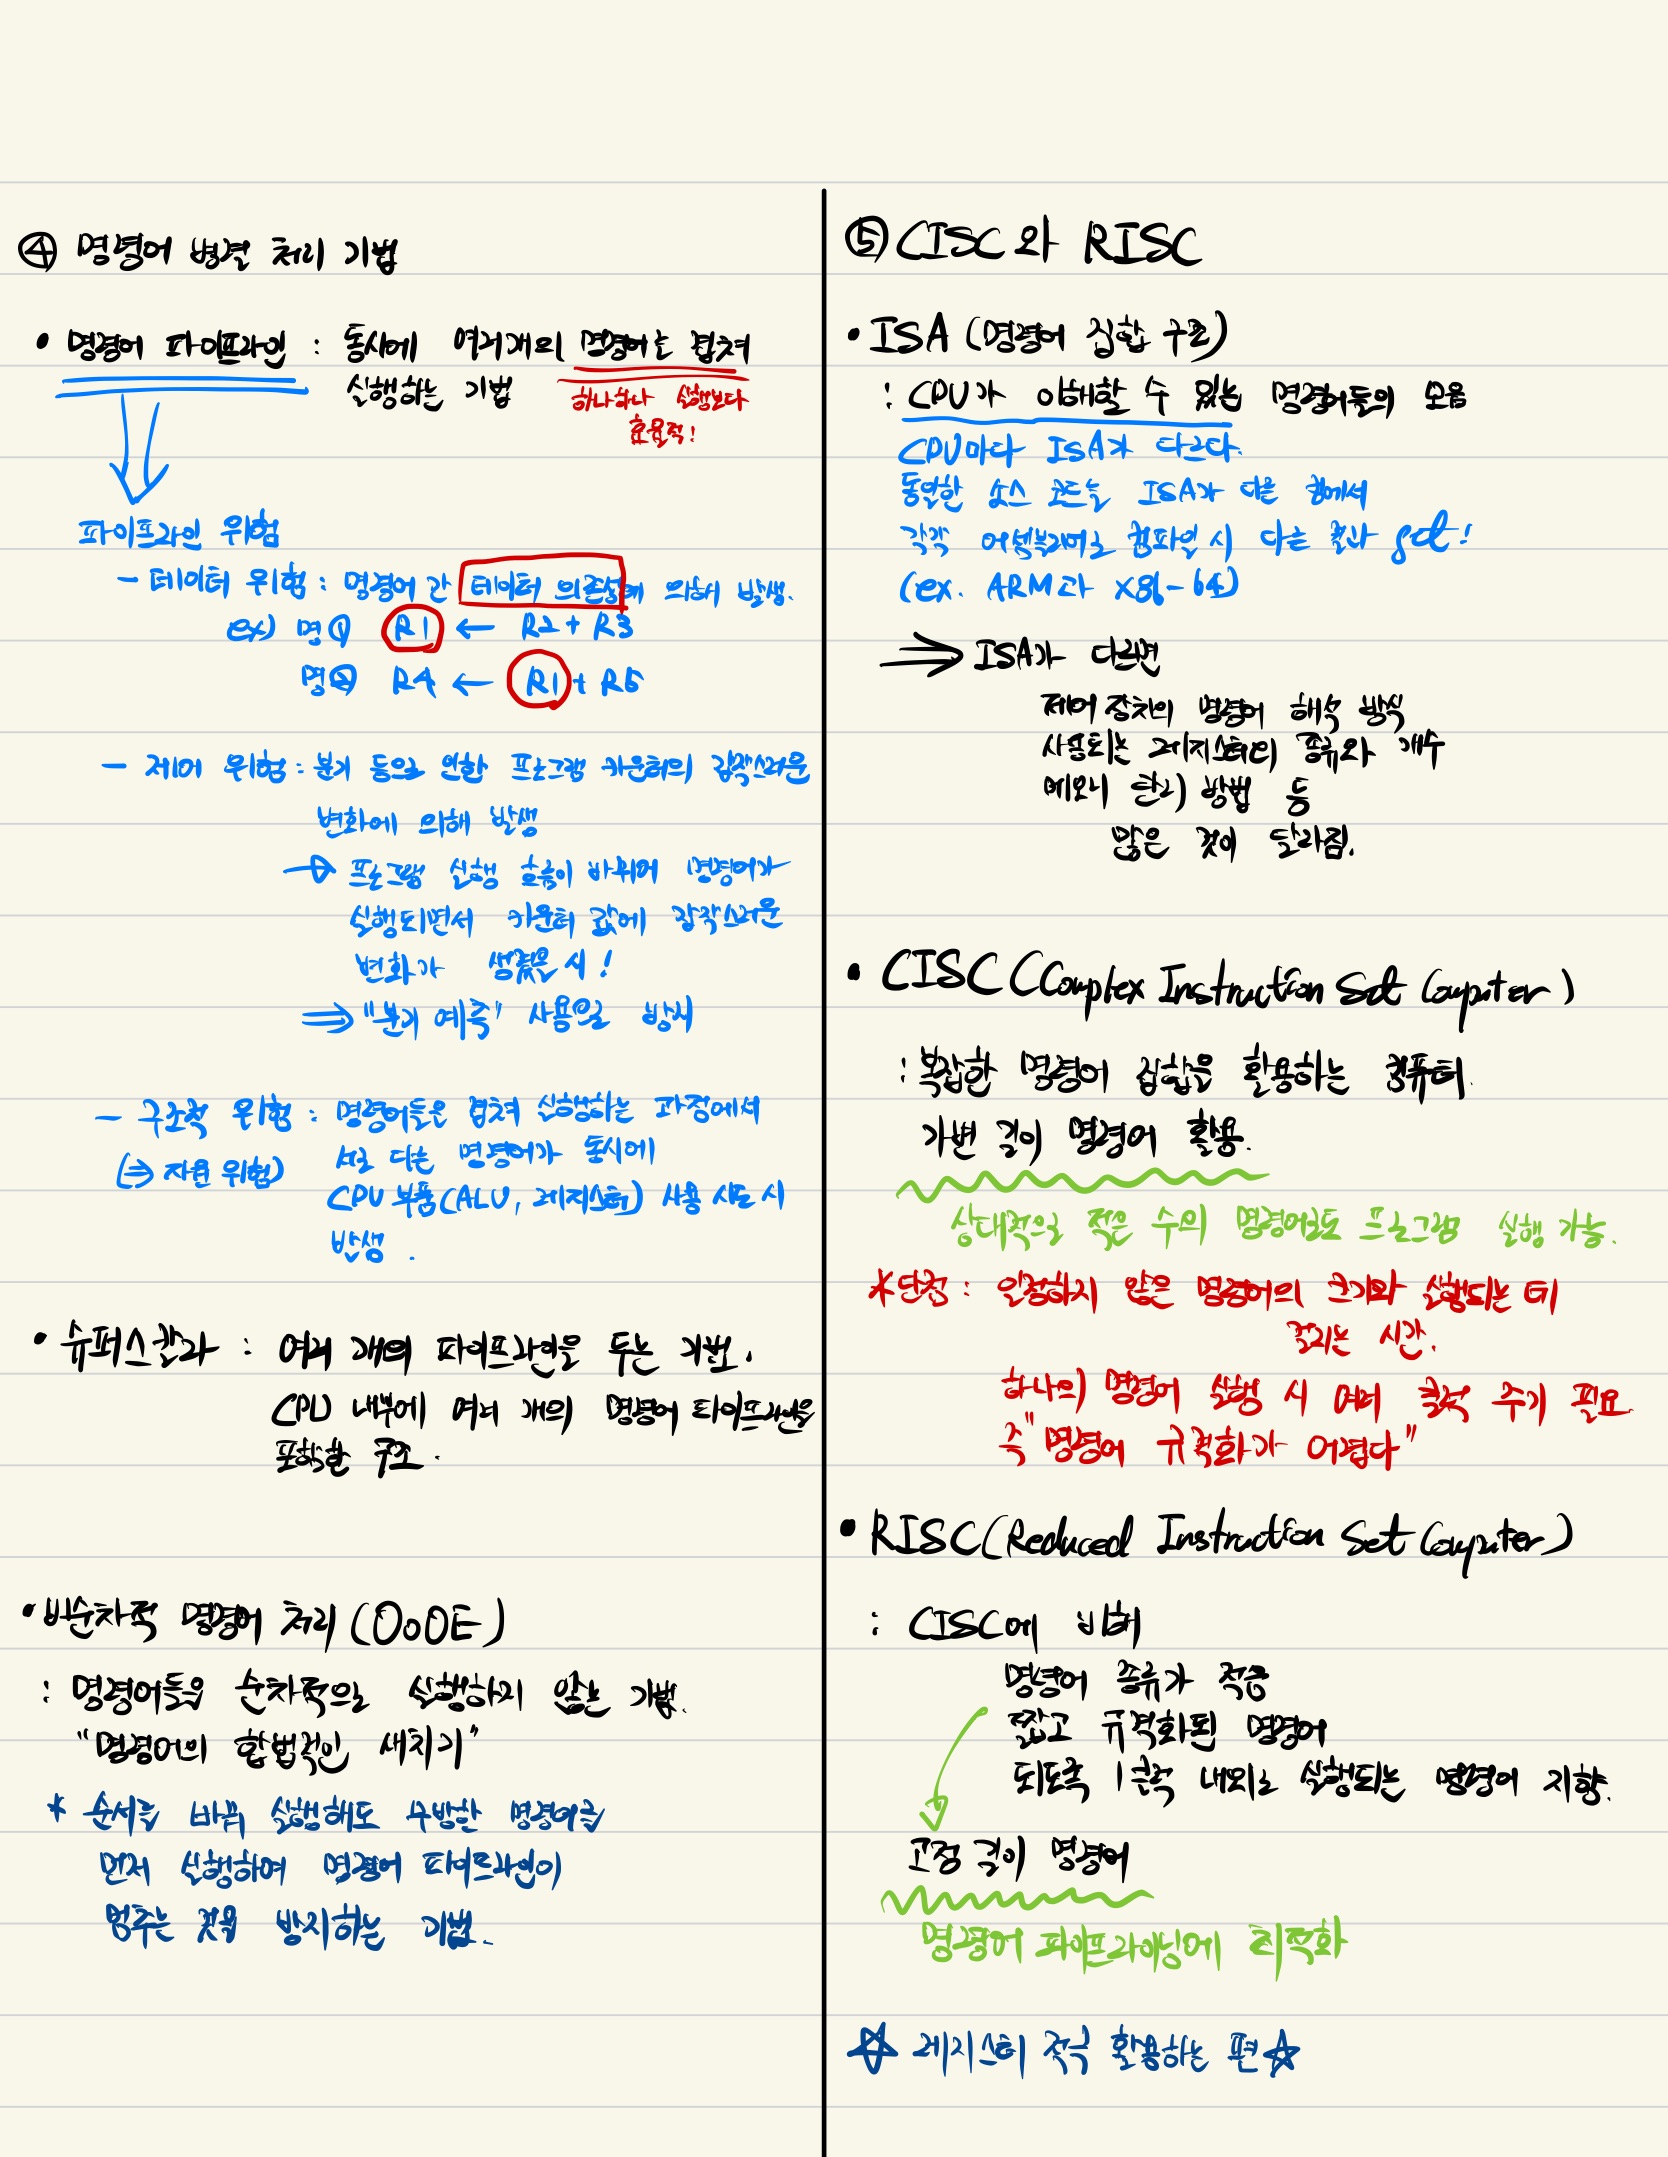 ④ 명령어 병렬 처리 기법
• 명령어 파이프라인 : 동시에 여러개의 명령어를 겹쳐
실행하는 기법
하나하나 실행보다
효율적!
파이프라인 위험
- 데이터 위험 : 명령어 간 데이터 의존성에 의해서 발생.
ex) 명① R1 ← R2 + R3
명② R4 ← R1 + R5
- 제어 위험 : 분기 등으로 인한 프로그램 카운터의 갑작스러운
변화에 의해 발생
→ 프로그램 실행 흐름이 바뀌어 명령어가
실행되면서 카운터 값에 갑작스러운
변화가 생겼을 시!
⇒ "분기 예측" 사용으로 방지
- 구조적 위험 : 명령어들은 겹쳐 실행하는 과정에서
(⇒ 자원 위험) 서로 다른 명령어가 동시에
CPU 부품(ALU, 레지스터) 사용 시도 시
발생.
• 슈퍼스칼라 : 여러 개의 파이프라인을 두는 기법.
CPU 내부에 여러 개의 명령어 파이프라인을
포함한 구조.
• 비순차적 명령어 처리 (OoOE)
: 명령어들을 순차적으로 실행하지 않는 기법.
"명령어의 합법적인 새치기"
* 순서를 바꿔 실행해도 무방한 명령어를
먼저 실행하여 명령어 파이프라인이
멈추는 것을 방지하는 기법.
⑤ CISC와 RISC
• ISA (명령어 집합 구조)
: CPU가 이해할 수 있는 명령어들의 모음
CPU마다 ISA가 다르다.
동일한 소스 코드를 ISA가 다른 컴에서
각각 어셈블리어로 컴파일 시 다른 결과 get!
(ex. ARM과 x86-64)
⇒ ISA가 다르면
제어 장치의 명령어 해석 방식
사용되는 레지스터의 종류와 개수
메모리 관리 방법 등
많은 것이 달라짐.
• CISC (Complex Instruction Set Computer)
: 복잡한 명령어 집합을 활용하는 컴퓨터.
가변 길이 명령어 활용.
상대적으로 적은 수의 명령어로도 프로그램 실행 가능.
*단점 : 일정하지 않은 명령어의 크기와 실행되는 데
걸리는 시간.
하나의 명령어 실행 시 여러 클럭 주기 필요
즉 "명령어 규격화가 어렵다"
• RISC (Reduced Instruction Set Computer)
: CISC에 비해
명령어 종류가 적음
짧고 규격화된 명령어
되도록 1클럭 내외로 실행되는 명령어 지향.
고정 길이 명령어
명령어 파이프라이닝에 최적화
☆ 레지스터 적극 활용하는 편☆